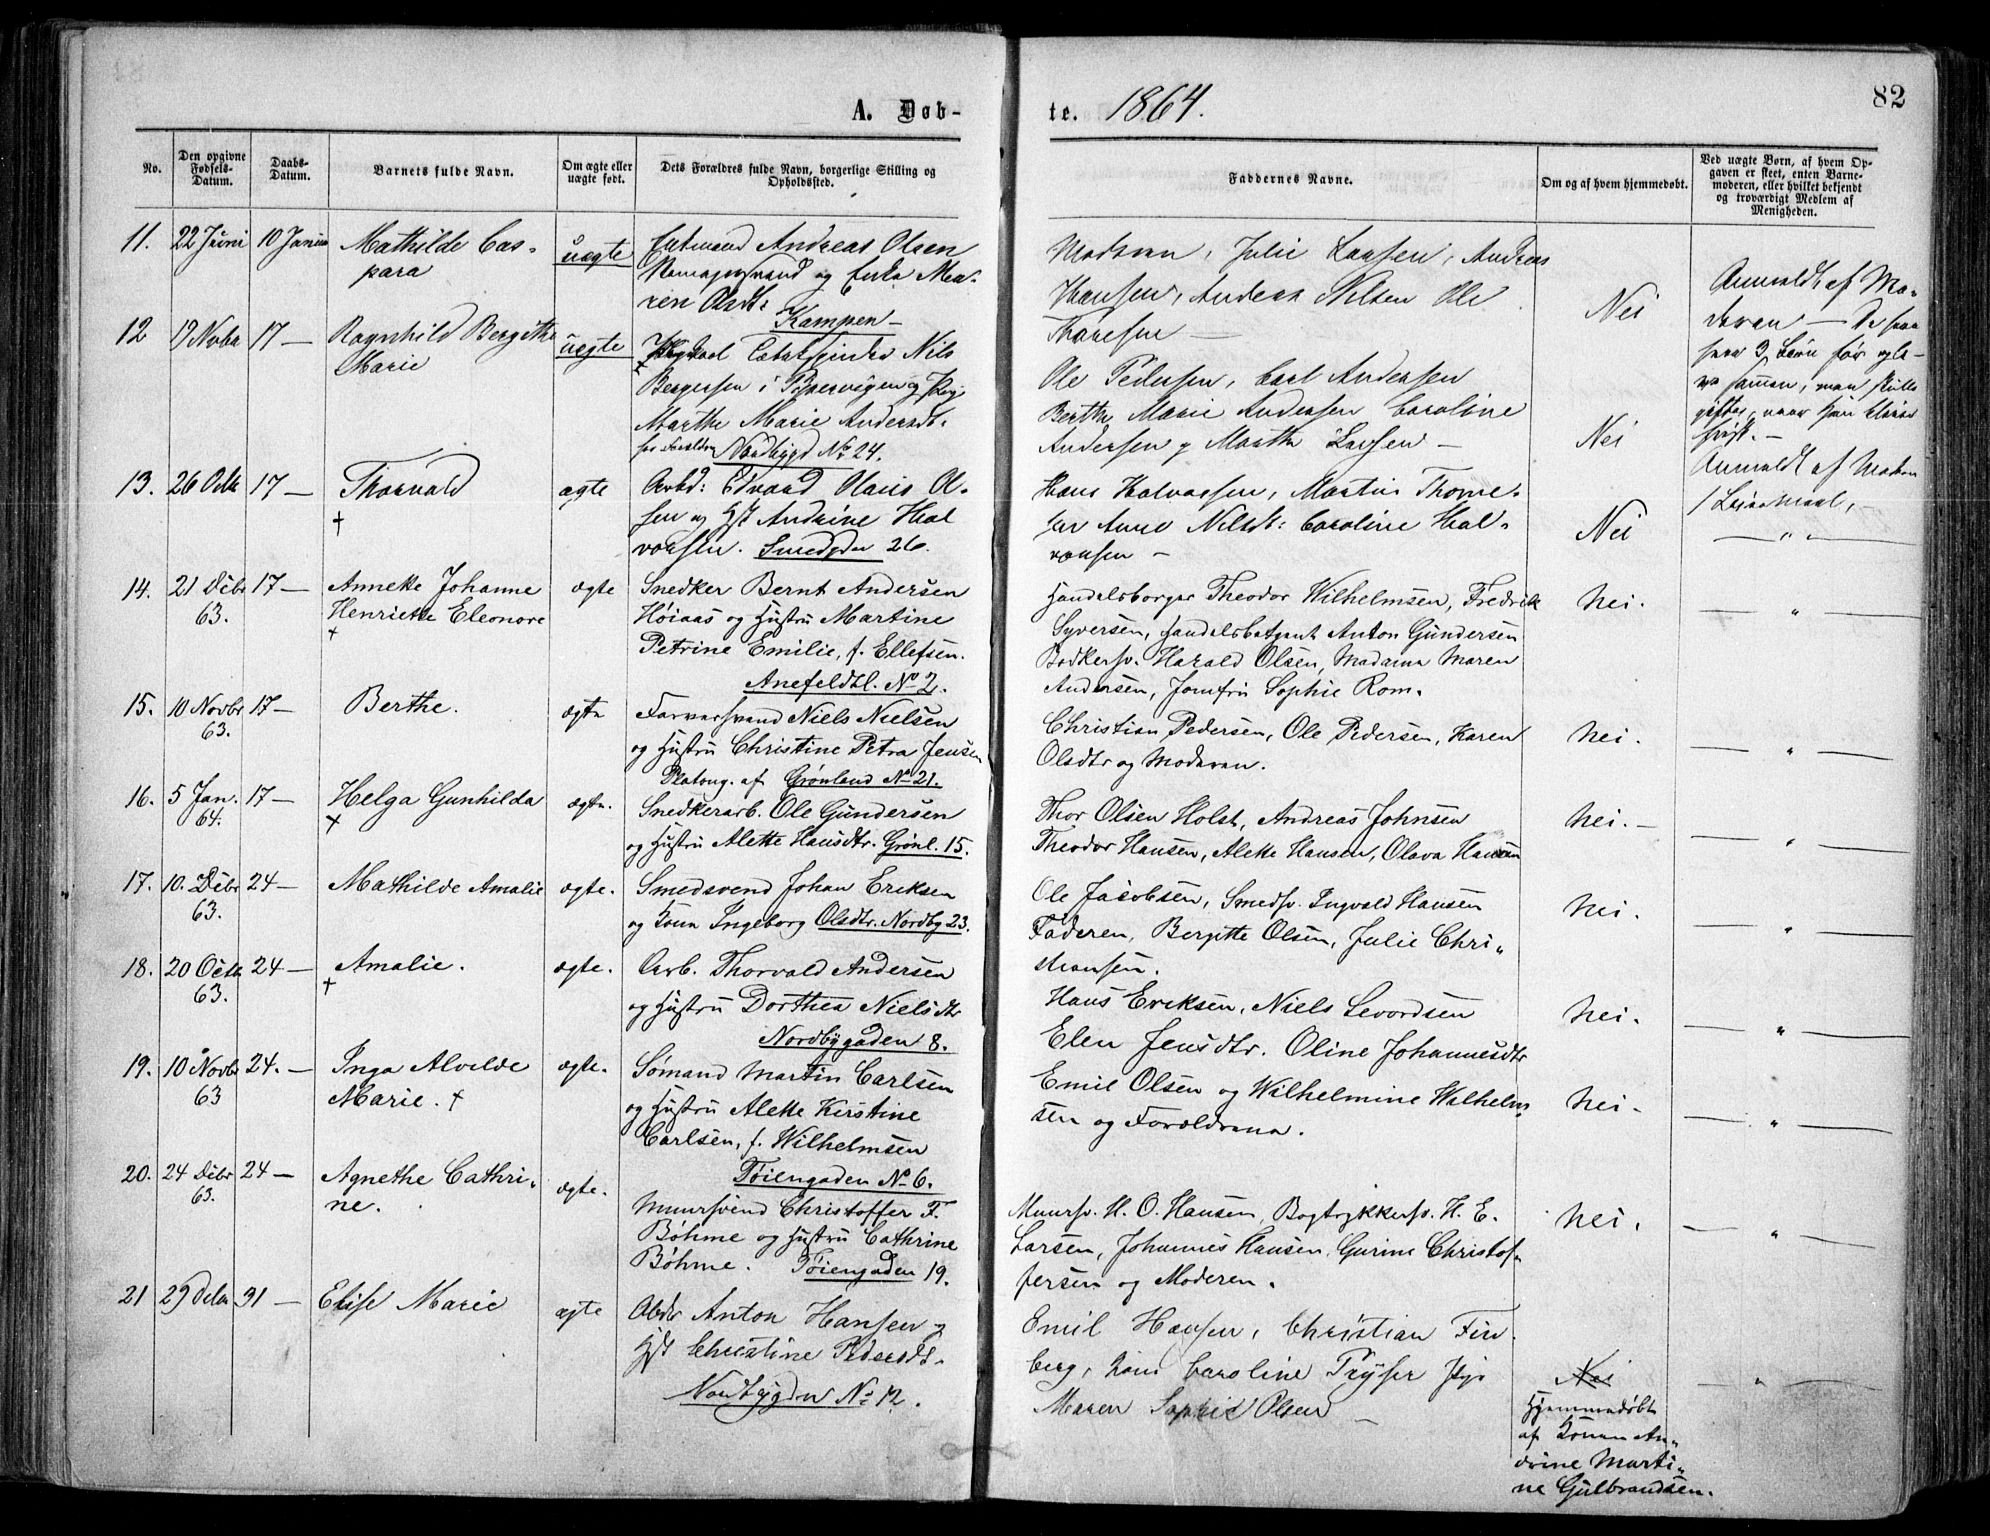 82
A. Døb-
te. 1864.
No.
Den opgivne Fødsels-Datum.
Daabs-Datum.
Barnets fulde Navn.
Om ægte eller uægte født.
Dets Forældres fulde Navn, borgerlige Stilling og Opholdssted.
Faddernes Navne.
Om og af hvem hjemmedøbt.
Ved uægte Børn, af hvem Op-
gaven er skeet, enten Barne-
moderen, eller hvilket bekjendt
og troværdigt Medlem af
Menigheden.
11. 22 Juni 10 Januar Mathilde Cas-
para
uægte
Enkemand Andreas Olsen
og Enke Ma-
ren Olsdt:
Kampen
Moderen, Julie Larsen, Andreas
Hansen, Anders Nilsen Ole
Nei
Anmeldt af Mo-
deren
12 17 — Ragnhild Bergithe
Marie
uegte
Nils
Bergersen i Pipervigen og Pige
Marthe Marie Andersdt.
Nordbygd No 24.
Ole Pedersen, Carl Andersen
Berthe Marie Andersen Caroline
Andersen g Marthe Larsen —
Nei
Anmeldt af Moderen
1 Leiermaal, —
13. 26 Octb 17 — Thorvald
+
ægte
Arbd: Edvard Olaus Ol-
sen og Hst Andrine Hal
vorsen. Smedgdn 26.
Hans Halvorsen, Martin Thome-
sen Anne Nilsdt: Caroline Hal-
vorsen —
Nei
— " —
14. 21 Debr 17 — Annette Johanne
63. Henriette Eleonore
+
ægte
Snedker Bernt Andersen
Høiaas og Hustru Martine
Petrine Emilie, f. Ellefsen.
Anefeldtl. No 2.
Handelsborger Theodor Wilhelmsen, Fredrik
Syversen, Handelsbetjent Anton Gundersen
Bødkersv. Harald Olsen, Madame Maren
Andersen, Jomfru Sophie Rom.
Nei.
— " —
15. 10 Novbr 17 — Berthe.
63.
ægte
Farversvend Niels Nielsen
og Hustru Christine Petra Jensen
Platoug. af Grønland No 21.
Christian Pedersen, Ole Pedersen, Karen
Olsdtr og Moderen.
Nei.
— " —
16. 5 Jan. 17 — Helga Gunhilda
64. +
ægte.
Snedkerarb. Ole Gundersen
og Hustru Alette Hansdtr. Grønl. 15.
Thor Olsen Holst, Andreas Johnsen
Theodor Hansen, Alette Hansen, Olava Hansen
Nei. —
— " —
17. 10. Debr 24 — Mathilde Amalie
63.
ægte.
Smedsvend Johan Eriksen
og Kone Ingeborg Olsdtr. Nordby 23.
Ole Jacobsen, Smedsv. Ingvald Hansen
Faderen, Bergitte Olsen, Julie Chri-
stiansen.
Nei.
— " —
18. 20 Octb 24 — Amalie.
63. +
ægte.
Arb. Thorvald Andersen
og Hustru Dorthea Nielsdtr
Nordbygaden 8.
Hans Eriksen, Niels Sevordsen
Elen Jensdtr. Oline Johannesdtr
Nei.
— " —
19. 10 Novbr 24. — Inga Alvilde
63 Marie. +
ægte.
Sømand Martin Carlsen
og Hustru Alette Kirstine
Carlsen, f. Wilhelmsen
Tøiengaden No 6.
Emil Olsen og Wilhelmine Wilhelm-
sen og Forældrene.
Nei.
— " —
20. 24 Debr 24 — Agnethe Cathri-
63. ne.
ægte.
Muursvend Christoffer F.
Bøhme og Hustru Cathrine
Bøhme. Tøiengaden 19.
Muursv. H. O. Hansen, Bogtrykkersv. H. E.
Larsen, Johannes Hansen, Gurine Christof-
fersen og Moderen.
Nei.
— " —
21 29 Debr 31 — Elise Marie
ægte
Arbdr Anton Hansen og
Hst Christine Pedersdt.
Nordbygdn No 12.
Emil Hansen, Christian Fin
berg, Kone Caroline Pige
Maren Sophie Olsen —
Nei
Hjemmedøbt
af Konen An-
drine Marti-
ne Gulbrandsen.
— " —